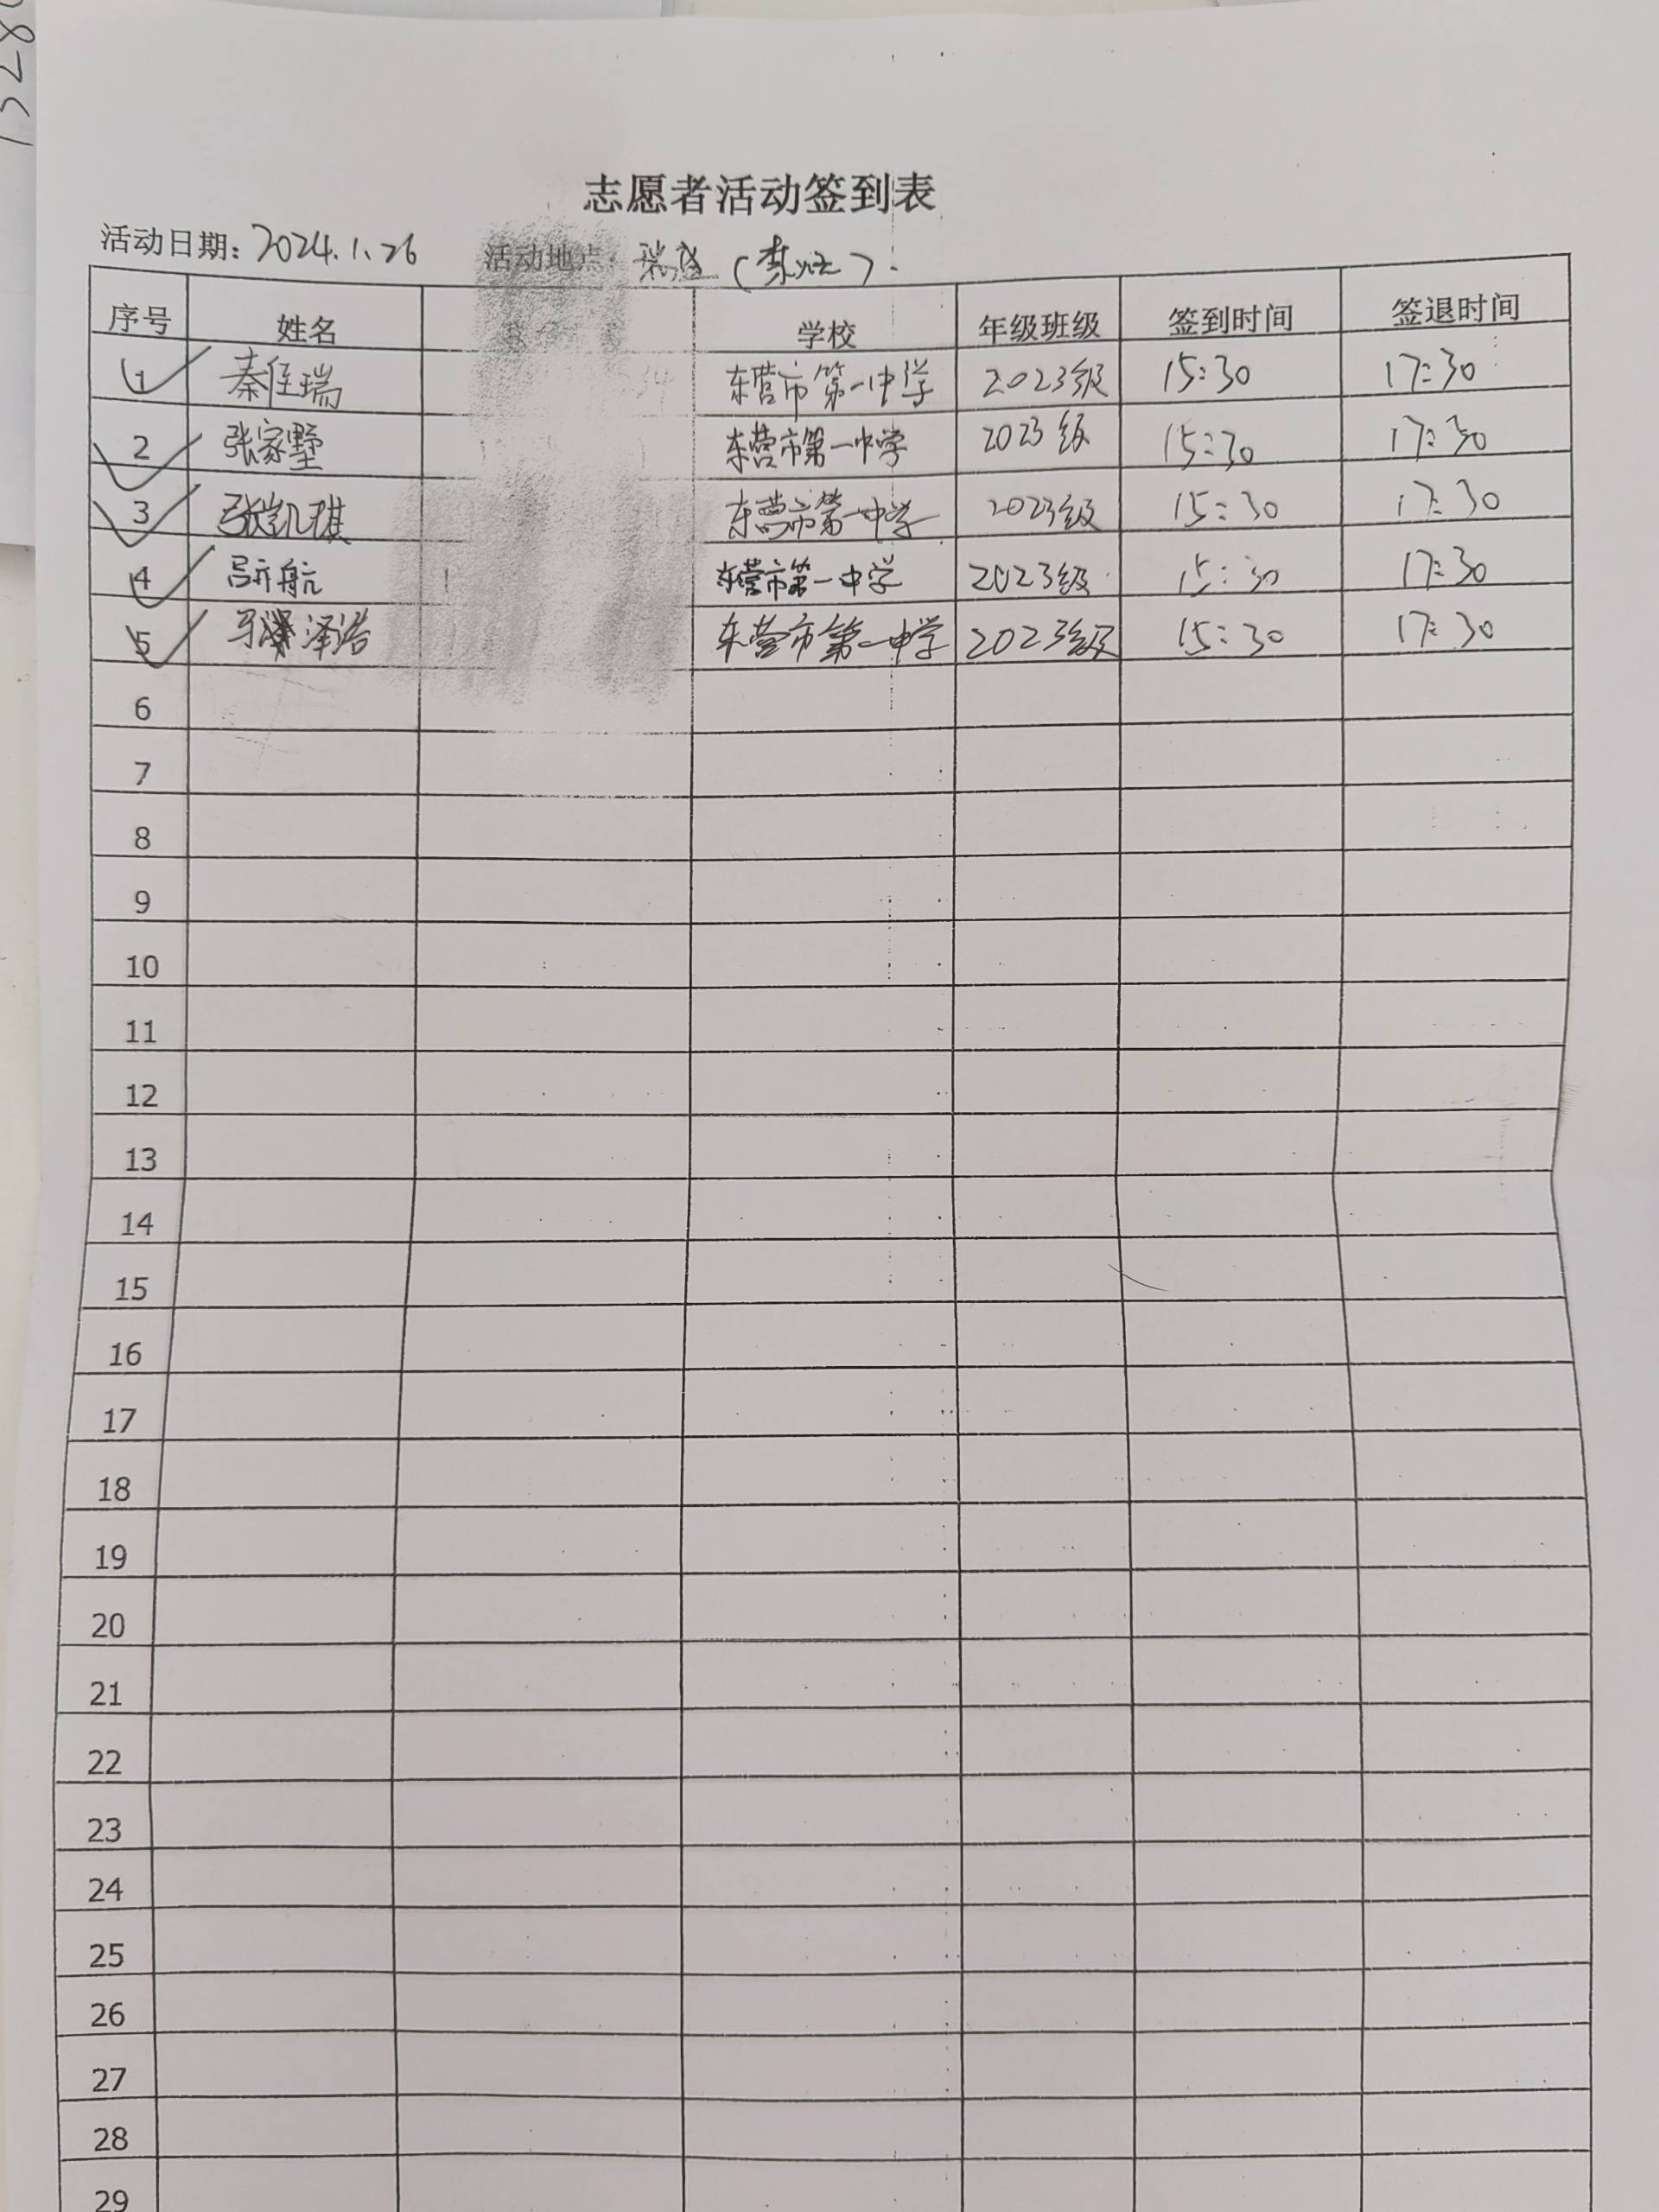 志愿者活动签到表
活动日期: 2024.1.26 活动地点: 瑞
序号 姓名 学校 年级班级 签到时间 签退时间
1 秦佳瑞 东营市第一中学 2023级 15:30 17:30
2 张家墅 东营市第一中学 2023级 15:30 17:30
3 张凯琪 东营市第一中学 2023级 15:30 17:30
4 吕航 东营市第一中学 2023级 15:30 17:30
5 马泽浩 东营市第一中学 2023级 15:30 17:30
6
7
8
9
10
11
12
13
14
15
16
17
18
19
20
21
22
23
24
25
26
27
28
29